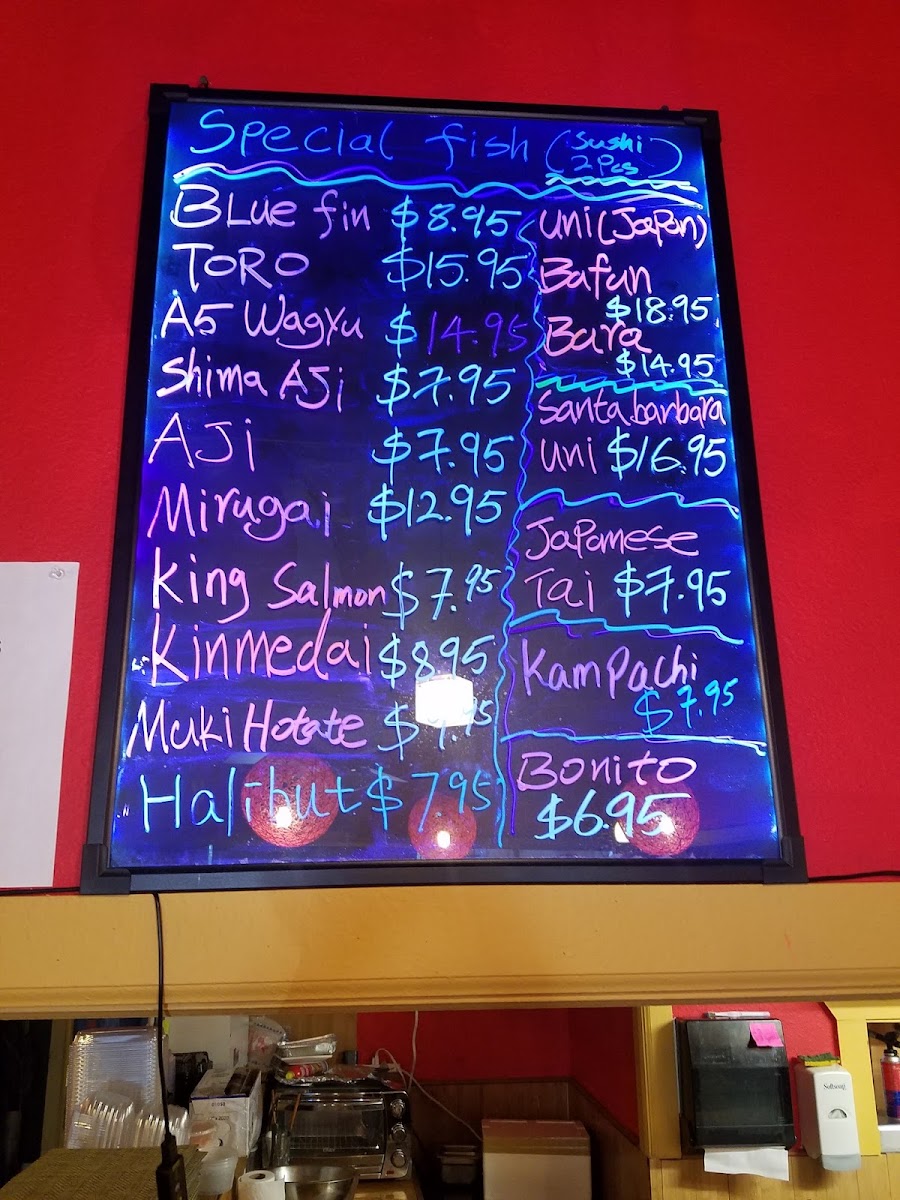 Special fish (Sushi 2 Pcs)
BLue fin $8.95
TORO $15.95
A5 Wagyu $14.95
Shima AJi $7.95
AJi $7.95
Mirugai $12.95
King Salmon $7.95
Kinmedai $8.95
Muki Hotate
Halibut $7.95
uni (Japan)
Bafun
$18.95
Bara
$14.95
Santa barbara
uni $16.95
JaPanese
Tai $7.95
KamPachi
$7.95
Bonito
$6.95
Softsoap